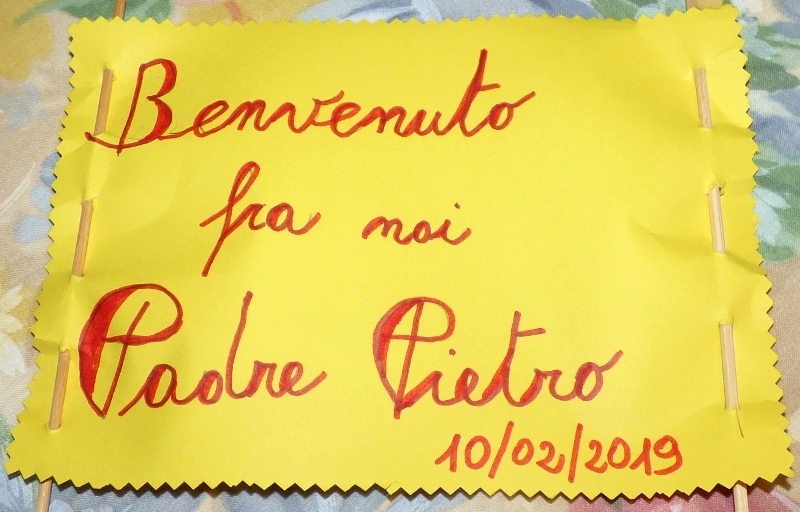 Benvenuto
fra noi
Padre Pietro
10/02/2019